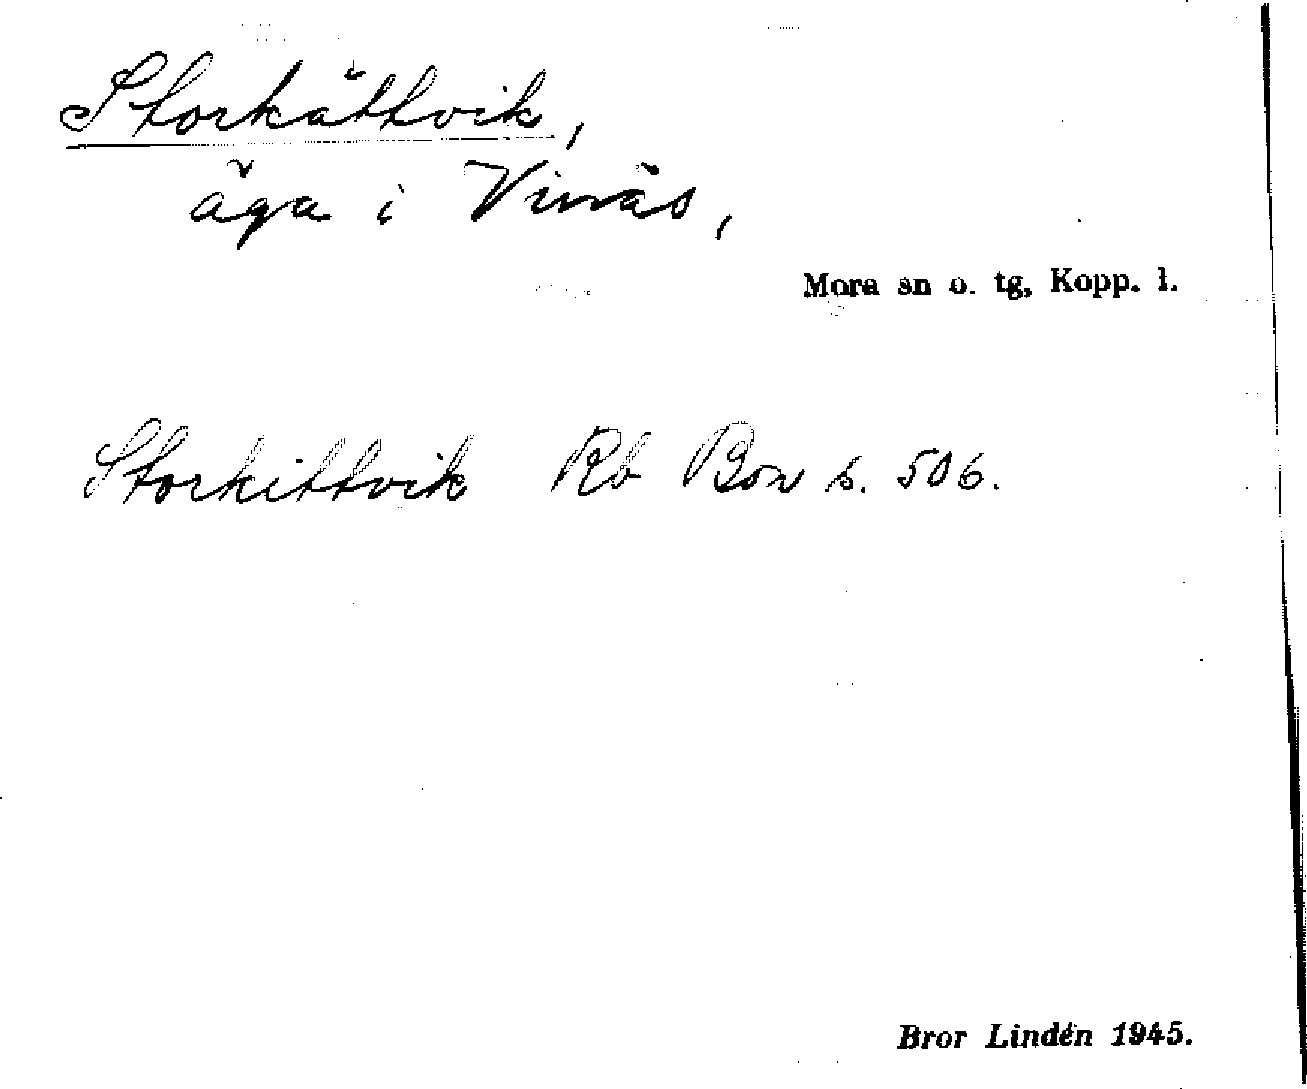 Storkättvik,
äga i Vinäs,
Mora sn o. tg, Kopp. l.
Storkittvik Rb Bon s. 506.
Bror Lindén 1945.